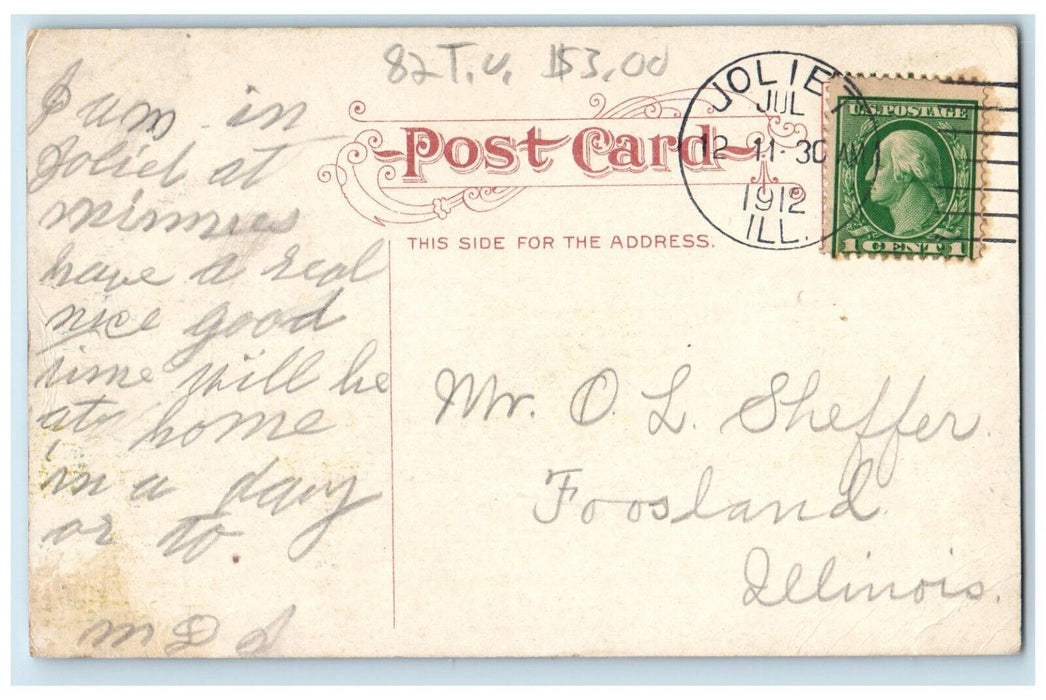 82 T.U. $3.00
Post Card
THIS SIDE FOR THE ADDRESS.
JOLIET
JUL
12 11-30 AM
1912
ILL.
U.S. POSTAGE
1 CENT 1
I um in
Joliel at
minnies
have a real
nice good
time will be
at home
in a dauy
or to
M D S
Mr. O. L. Sheffer.
Foosland
Illinois.